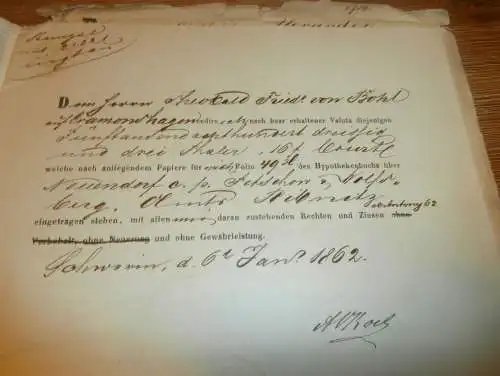 Dem Herrn Theobald Friedr von Bohl
auf Cramonshagen cedire ich nach baar erhaltener Valuta diejenigen
Fünftausend achthundert dreissig
und drei Thaler 16 f Courant
welche nach anliegendem Papiere für mich Folio 49 des Hypothekenbuchs über
Neuendorf c. p. Petschow & Wolfs-
berg, Amts Ribnitz
eingetragen stehen, mit allen mir daran zustehenden Rechten und Zinsen ohne
Vorbehalt, ohne Neuerung und ohne Gewährleistung.
Schwerin, d. 6t Jan. 1862
AKoch